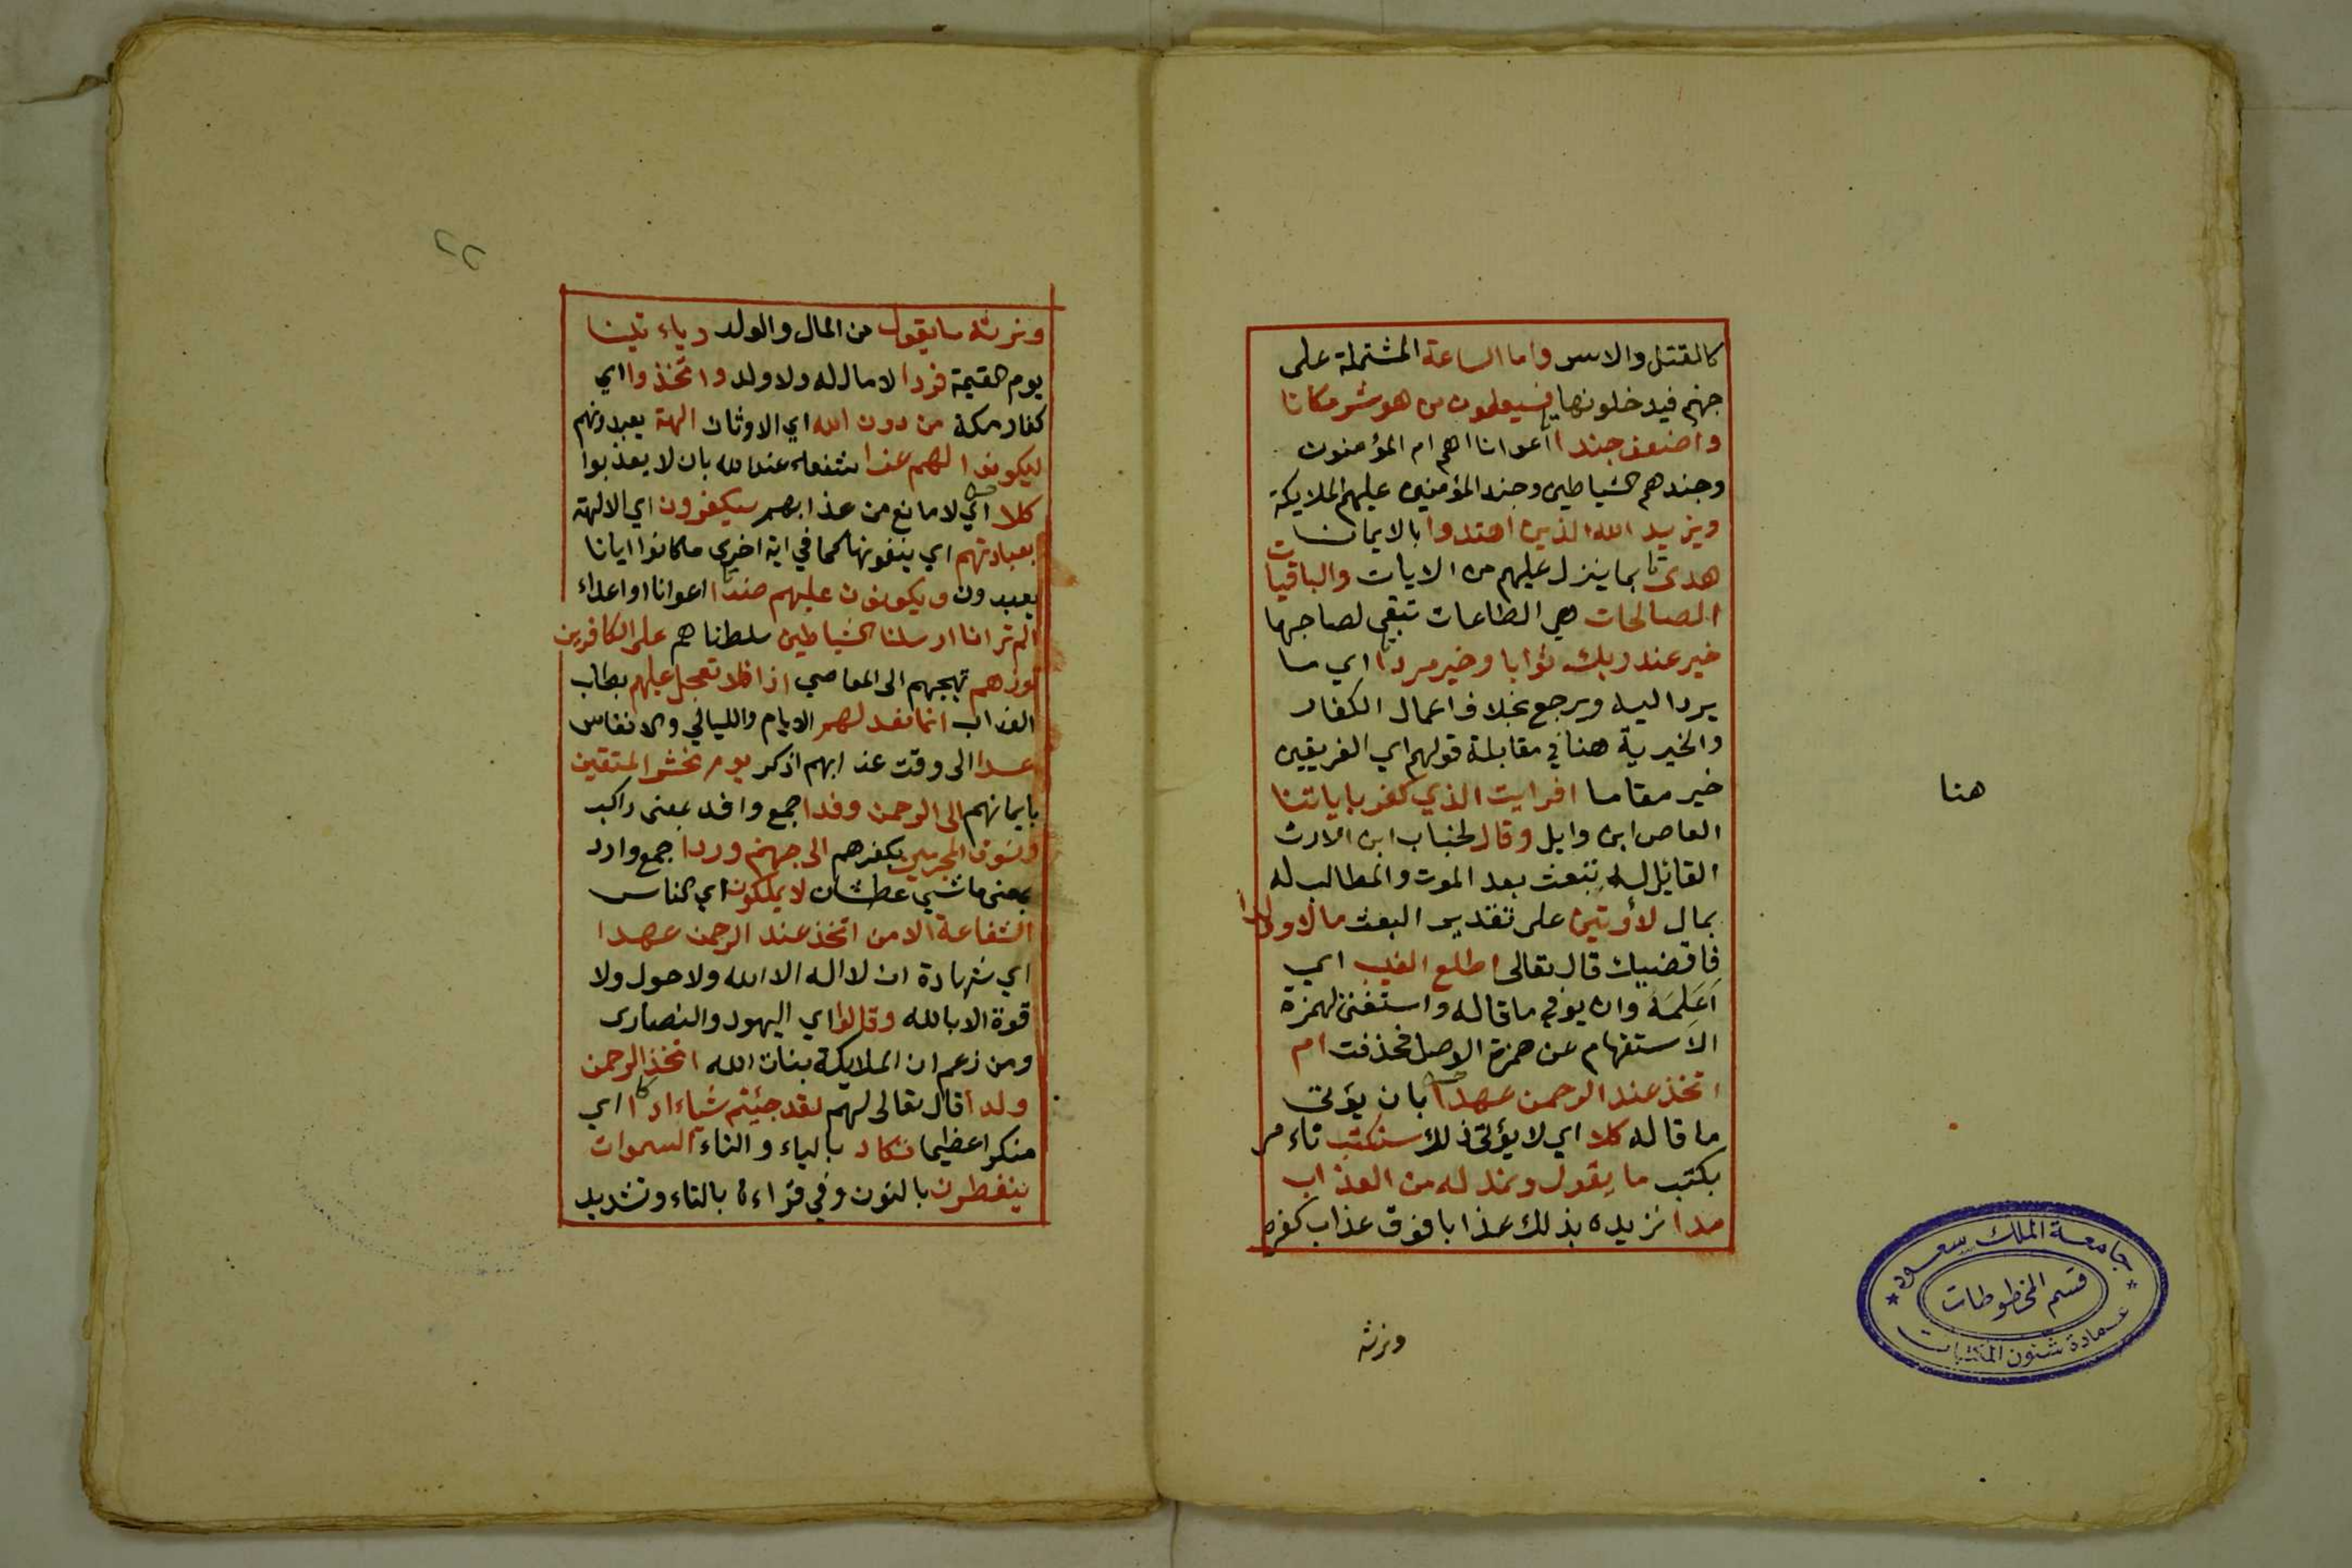 كالقتل والاسر واما الساعة المشتملة على
جهنم فيدخلونها فسيعلمون من هو شر مكانا
واضعف جندا أعوانا اهم ام المؤمنون
وجندهم الشياطين وجند المؤمنين عليهم الملايكة
ويزيد الله الذين اهتدوا بالايمان
هدى بما ينزل عليهم من الايات والباقيات
الصالحات هي الطاعات تبقى لصاحبها
خير عند ربك ثوابا وخير مردا اي ما
يرد اليه ويرجع بخلاف اعمال الكفار
والخيرية هنا في مقابلة قولهم اي الفريقين
خير مقاما افرايت الذي كفر باياتنا
العاص ابن وايل وقال لخباب ابن الارت
القايل له تبعث بعد الموت والمطالب له
بمال لأوتين على تقدير البعث مالا وولدا
فاقضيك قال تعالى اطلع الغيب اي
أعلمه وان يوفي ما قاله واستغنى بهمزة
الاستفهام عن همزة الوصل فحذفت ام
اتخذ عند الرحمن عهدا بان يؤتى
ما قاله كلا اي لا يؤتى ذلك سنكتب نامر
بكتب ما يقول ونمد له من العذاب
مدا نزيده بذلك عذابا فوق عذاب كفره
ونرثه
هنا
جامعة الملك سعود
قسم المخطوطات
عمادة شئون المكتبات
٢٢
ونرثه ما يقول من المال والولد وياءتينا
يوم القيمة فردا لا مال له ولا ولد واتخذوا اي
كفار مكة من دون الله اي الاوثان الهة يعبدونهم
ليكونوا لهم عزا شفعاء عند الله بان لا يعذبوا
كلا اي لا مانع من عذابهم سيكفرون اي الالهة
بعبادتهم اي ينفونها كما في اية اخرى ما كانوا ايانا
يعبدون ويكونون عليهم ضدا اعوانا او اعداء
الم تر انا ارسلنا الشياطين سلطناهم على الكافرين
توزهم تهيجهم الى المعاصي ازا فلا تعجل عليهم بطلب
العذاب انما نعد لهم الايام والليالي والانفاس
عدا الى وقت عذابهم اذكر يوم نحشر المتقين
بايمانهم الى الرحمن وفدا جمع وافد بمعنى راكب
ونسوق المجرمين بكفرهم الى جهنم وردا جمع وارد
بمعنى ماشي عطشان لا يملكون اي الناس
الشفاعة الا من اتخذ عند الرحمن عهدا
اي شهادة ان لا اله الا الله ولا حول ولا
قوة الا بالله وقالوا اي اليهود والنصارى
ومن زعم ان الملايكة بنات الله اتخذ الرحمن
ولدا قال تعالى لهم لقد جئتم شياء ادا اي
منكرا عظيما تكاد بالياء والتاء السموات
ينفطرن بالنون وفي قراءة بالتاء وتشديد